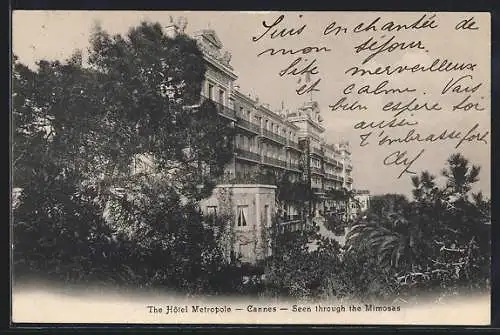 Suis enchantée de
mon séjour.
Site merveilleux
et calme. Vais
bien espère toi
aussi
T'embrasse fort
The Hôtel Metropole — Cannes — Seen through the Mimosas